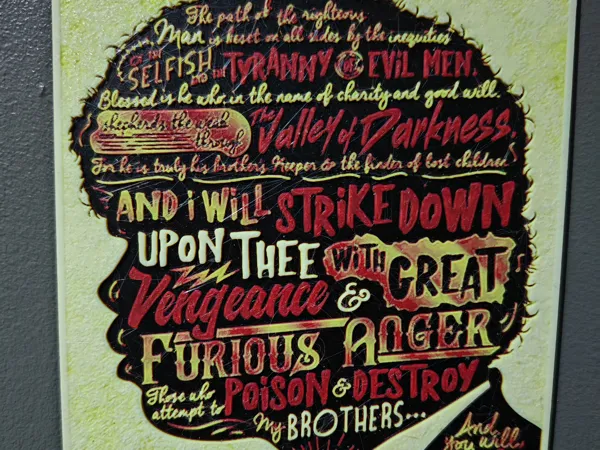 The path of the righteous
Man is beset on all sides by the inequities
OF THE SELFISH AND THE TYRANNY OF EVIL MEN.
Blessed is he who, in the name of charity and good will,
shepherds the weak through The Valley of Darkness,
For he is truly his brothers Keeper & the finder of lost children
AND i WiLL STRiKE DOWN
UPON THEE WiTH GREAT
Vengeance &
FURIOUS ANGER
Those who attempt to POiSON & DESTROY
My BROTHERS...
And you will